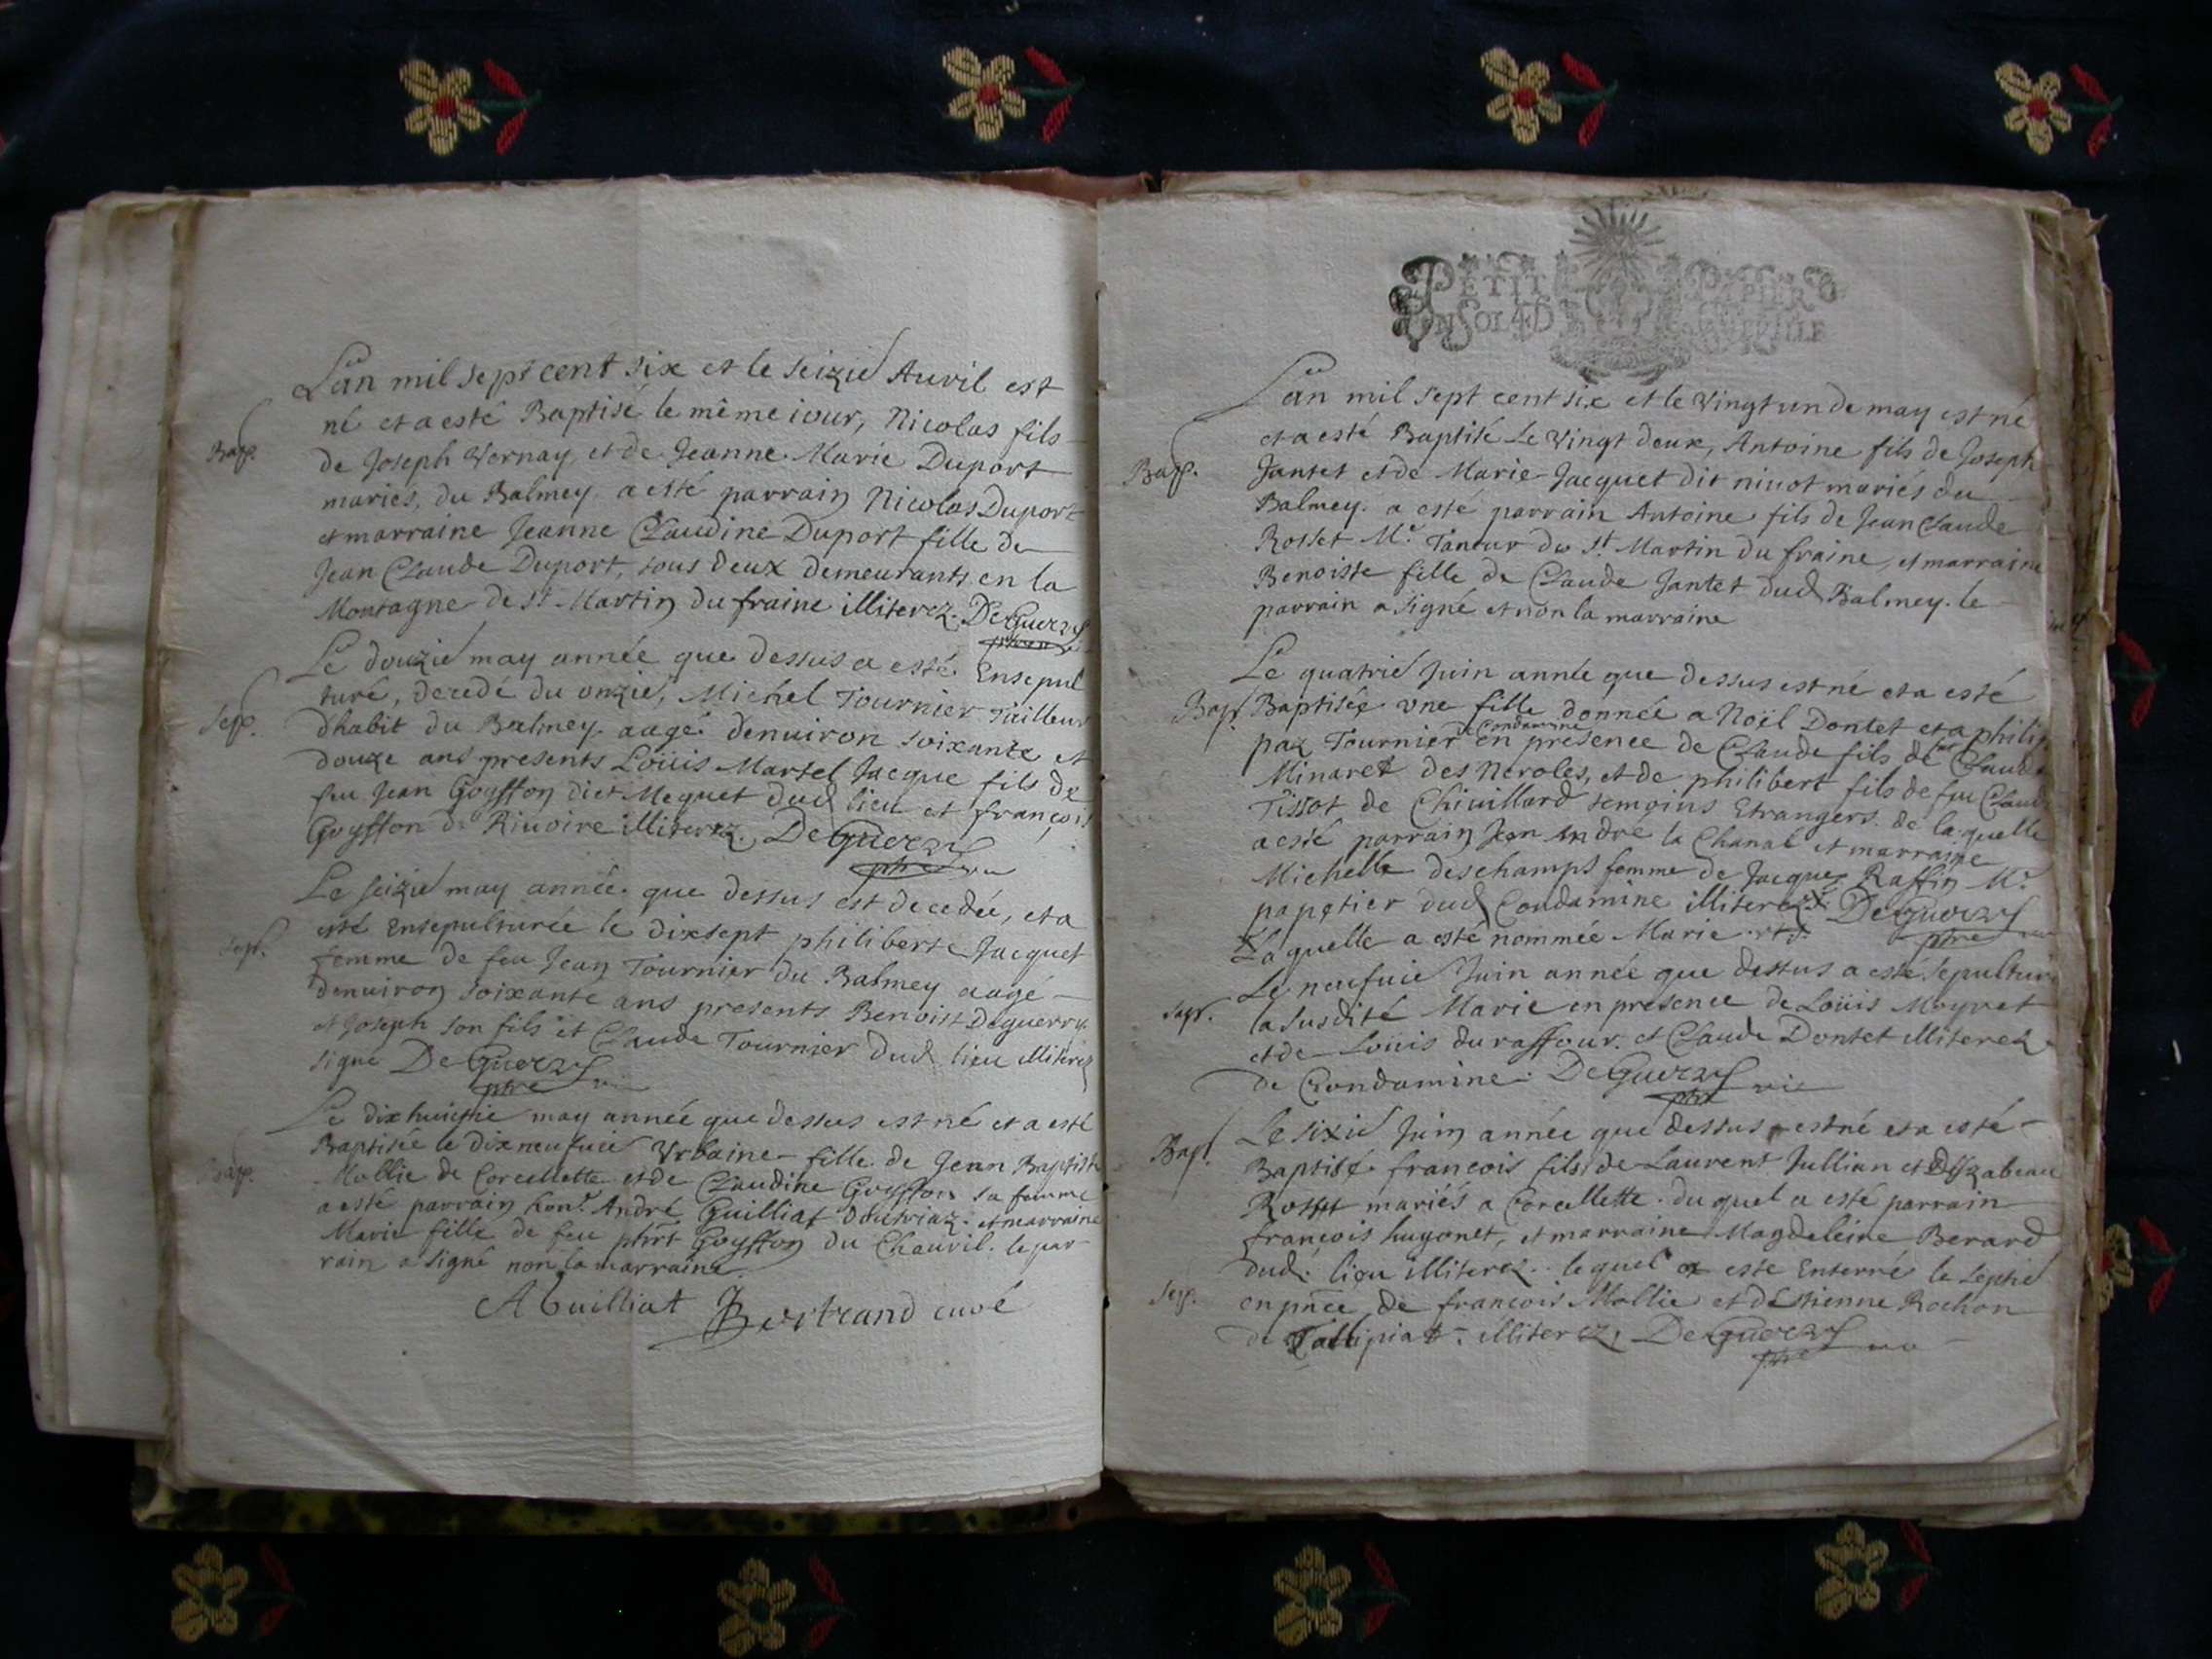 L'an mil sept cent six et le seizie Auril est
né et a esté Baptisé le même iour, Nicolas fils
Bap.
de Joseph Vernay, et de Jeanne Marie Duport
mariés, du Balmey a esté parrain Nicolas Duport
et marraine Jeanne Claudine Duport fille de
Jean Claude Duport, tous deux demeurants en la
Montagne de St Martin du fraine illiterez. DeGuerry
ptre
Le douzie may année que dessus a esté Ensepul
turé, decedé du onzie, Michel Tournier Tailleur
Sep.
dhabit du Balmey aagé denuiron soixante et
douze ans presents Loüis Martel Jacque fils de
feu Jean Goyffon dict Meguet dud lieu et françois
Goyffon de Riuoire illiterez. DeGuerry
ptre
Le seizie may année que dessus est decedée, et a
esté Ensepulturée le dixsept philiberte Jacquet
Sep.
femme de feu Jean Tournier du Balmey aagé
denuiron soixante ans presents Benoist Deguerry
et Joseph son fils et Claude Tournier dud lieu illiterez
signé DeGuerry
ptre
Le dixhuitie may année que dessus est né et a esté
Baptisée le dixneufuie Urbaine fille de Jean Baptiste
Bap.
Mollie de Corcellette et de Claudine Goyffon sa femme
a esté parrain hon. André Guilliat et marraine
Marie fille de feu phrt Goyffon du Chauril. le par
rain a signé non la marraine.
A Guilliat Bertrand curé
PETIT PAPIER
UN SOL 4 D LA FEUILLE
L'an mil sept cent six et le vingt un de may est né
et a esté Baptisé le vingt deux, Antoine fils de Joseph
Bap.
Jantet et de Marie Jacquet dit niuot mariés du
Balmey. a esté parrain Antoine fils de Jean Claude
Rosset Mr. Taneur de St Martin du fraine, et marraine
Benoiste fille de Claude Jantet dud Balmey. le
parrain a signé et non la marraine
Le quatrie Juin année que dessus est né et a esté
Bap. Baptisée une fille donnée a Noël Dontet et a philip
de Condamine
paz Tournier en presence de Claude fils de Claude
Minaret des Neroles, et de philibert fils de feu Claude
Tissot de Chiuillard temoins Etrangers. de la quelle
a esté parrain Jean André la Chanal et marraine
Michelle deschamps femme de Jacques Raffin Mr.
papetier dud Condamine illiterez. DeGuerry
ptre
Laquelle a esté nommée Marie
Le neufuie Juin année que dessus a esté sepulturé
Sep.
la susdite Marie en presence de Loüis Moyret
et de Loüis du raffour. et Claude Dontet illiterez
de Condamine. DeGuerry
ptre
Le sixie Juin année que dessus est né et a esté
Bap.
Baptisé françois fils de Laurent Jullian et Dyzabeau
Rosset mariés a Corcellette. du quel a esté parrain
françois hugonet, et marraine Magdeleine Berard
dud. lieu illiterez. lequel a esté Enterré le septie
Sep.
en pnce de francois Mollie et dEstienne Rochon
de illiterez, DeGuerry
ptre